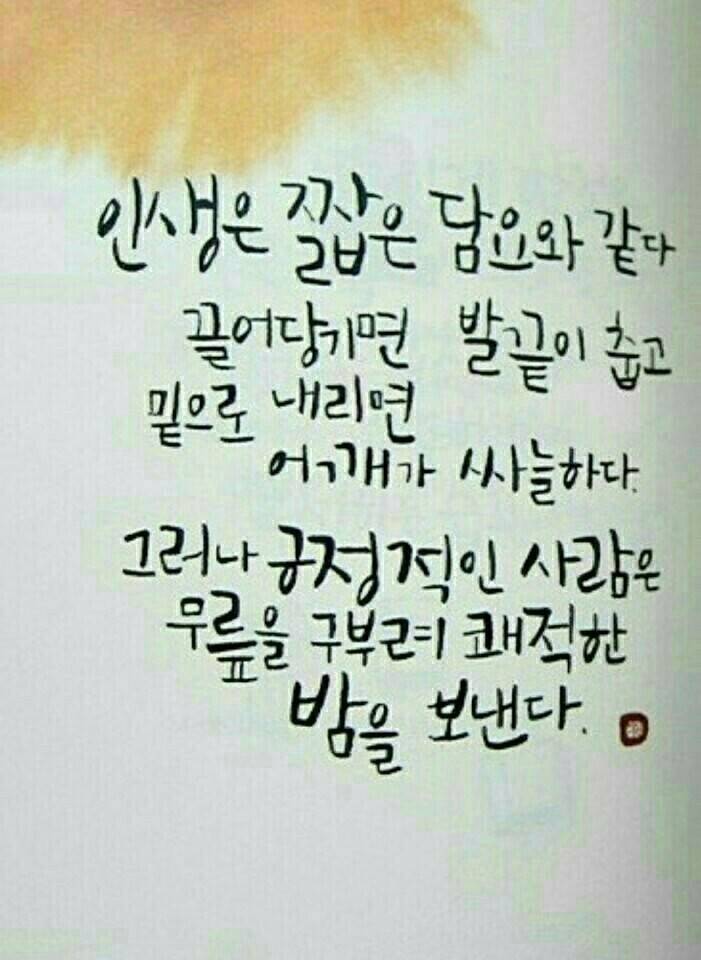 인생은 짧은 담요와 같다
끌어당기면 발끝이 춥고
밑으로 내리면
어깨가 싸늘하다.
그러나 긍정적인 사람은
무릎을 구부려 쾌적한
밤을 보낸다.